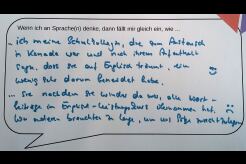 Wenn ich an Sprache(n) denke, dann fällt mir gleich ein, wie ...
... ich meine Schulkollegin, die zum Austausch
in Kanada war und nach ihrem Aufenthalt
sagt, dass sie auf Englisch träumt, ein
wenig sehr darum beneidet habe.
... sie nachdem sie wieder da war, alle Wort-
beiträge im Englisch-Leistungskurs übernommen hat.
Wir anderen brauchten ja lange, um uns